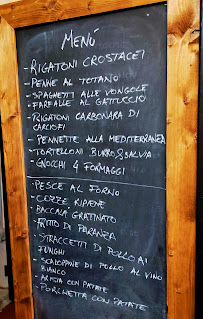 MENÚ
- RIGATONI CROSTACEI
- PENNE AL TOTANO
- SPAGHETTI ALLE VONGOLE
- FARFALLE AL GATTUCCIO
- RIGATONI CARBONARA DI
CARCIOFI
- PENNETTE ALLA MEDITERRANEA
- TORTELLONI BURRO & SALVIA
- GNOCCHI 4 FORMAGGI
- PESCE AL FORNO
- COZZE RIPIENE
- BACCALÀ GRATINATO
- FRITTO DI PARANZA
- STRACCETTI DI POLLO AI
FUNGHI
- SCALOPPINE DI POLLO AL VINO
BIANCO
- ARISTA CON PATATE
- PORCHETTA CON PATATE